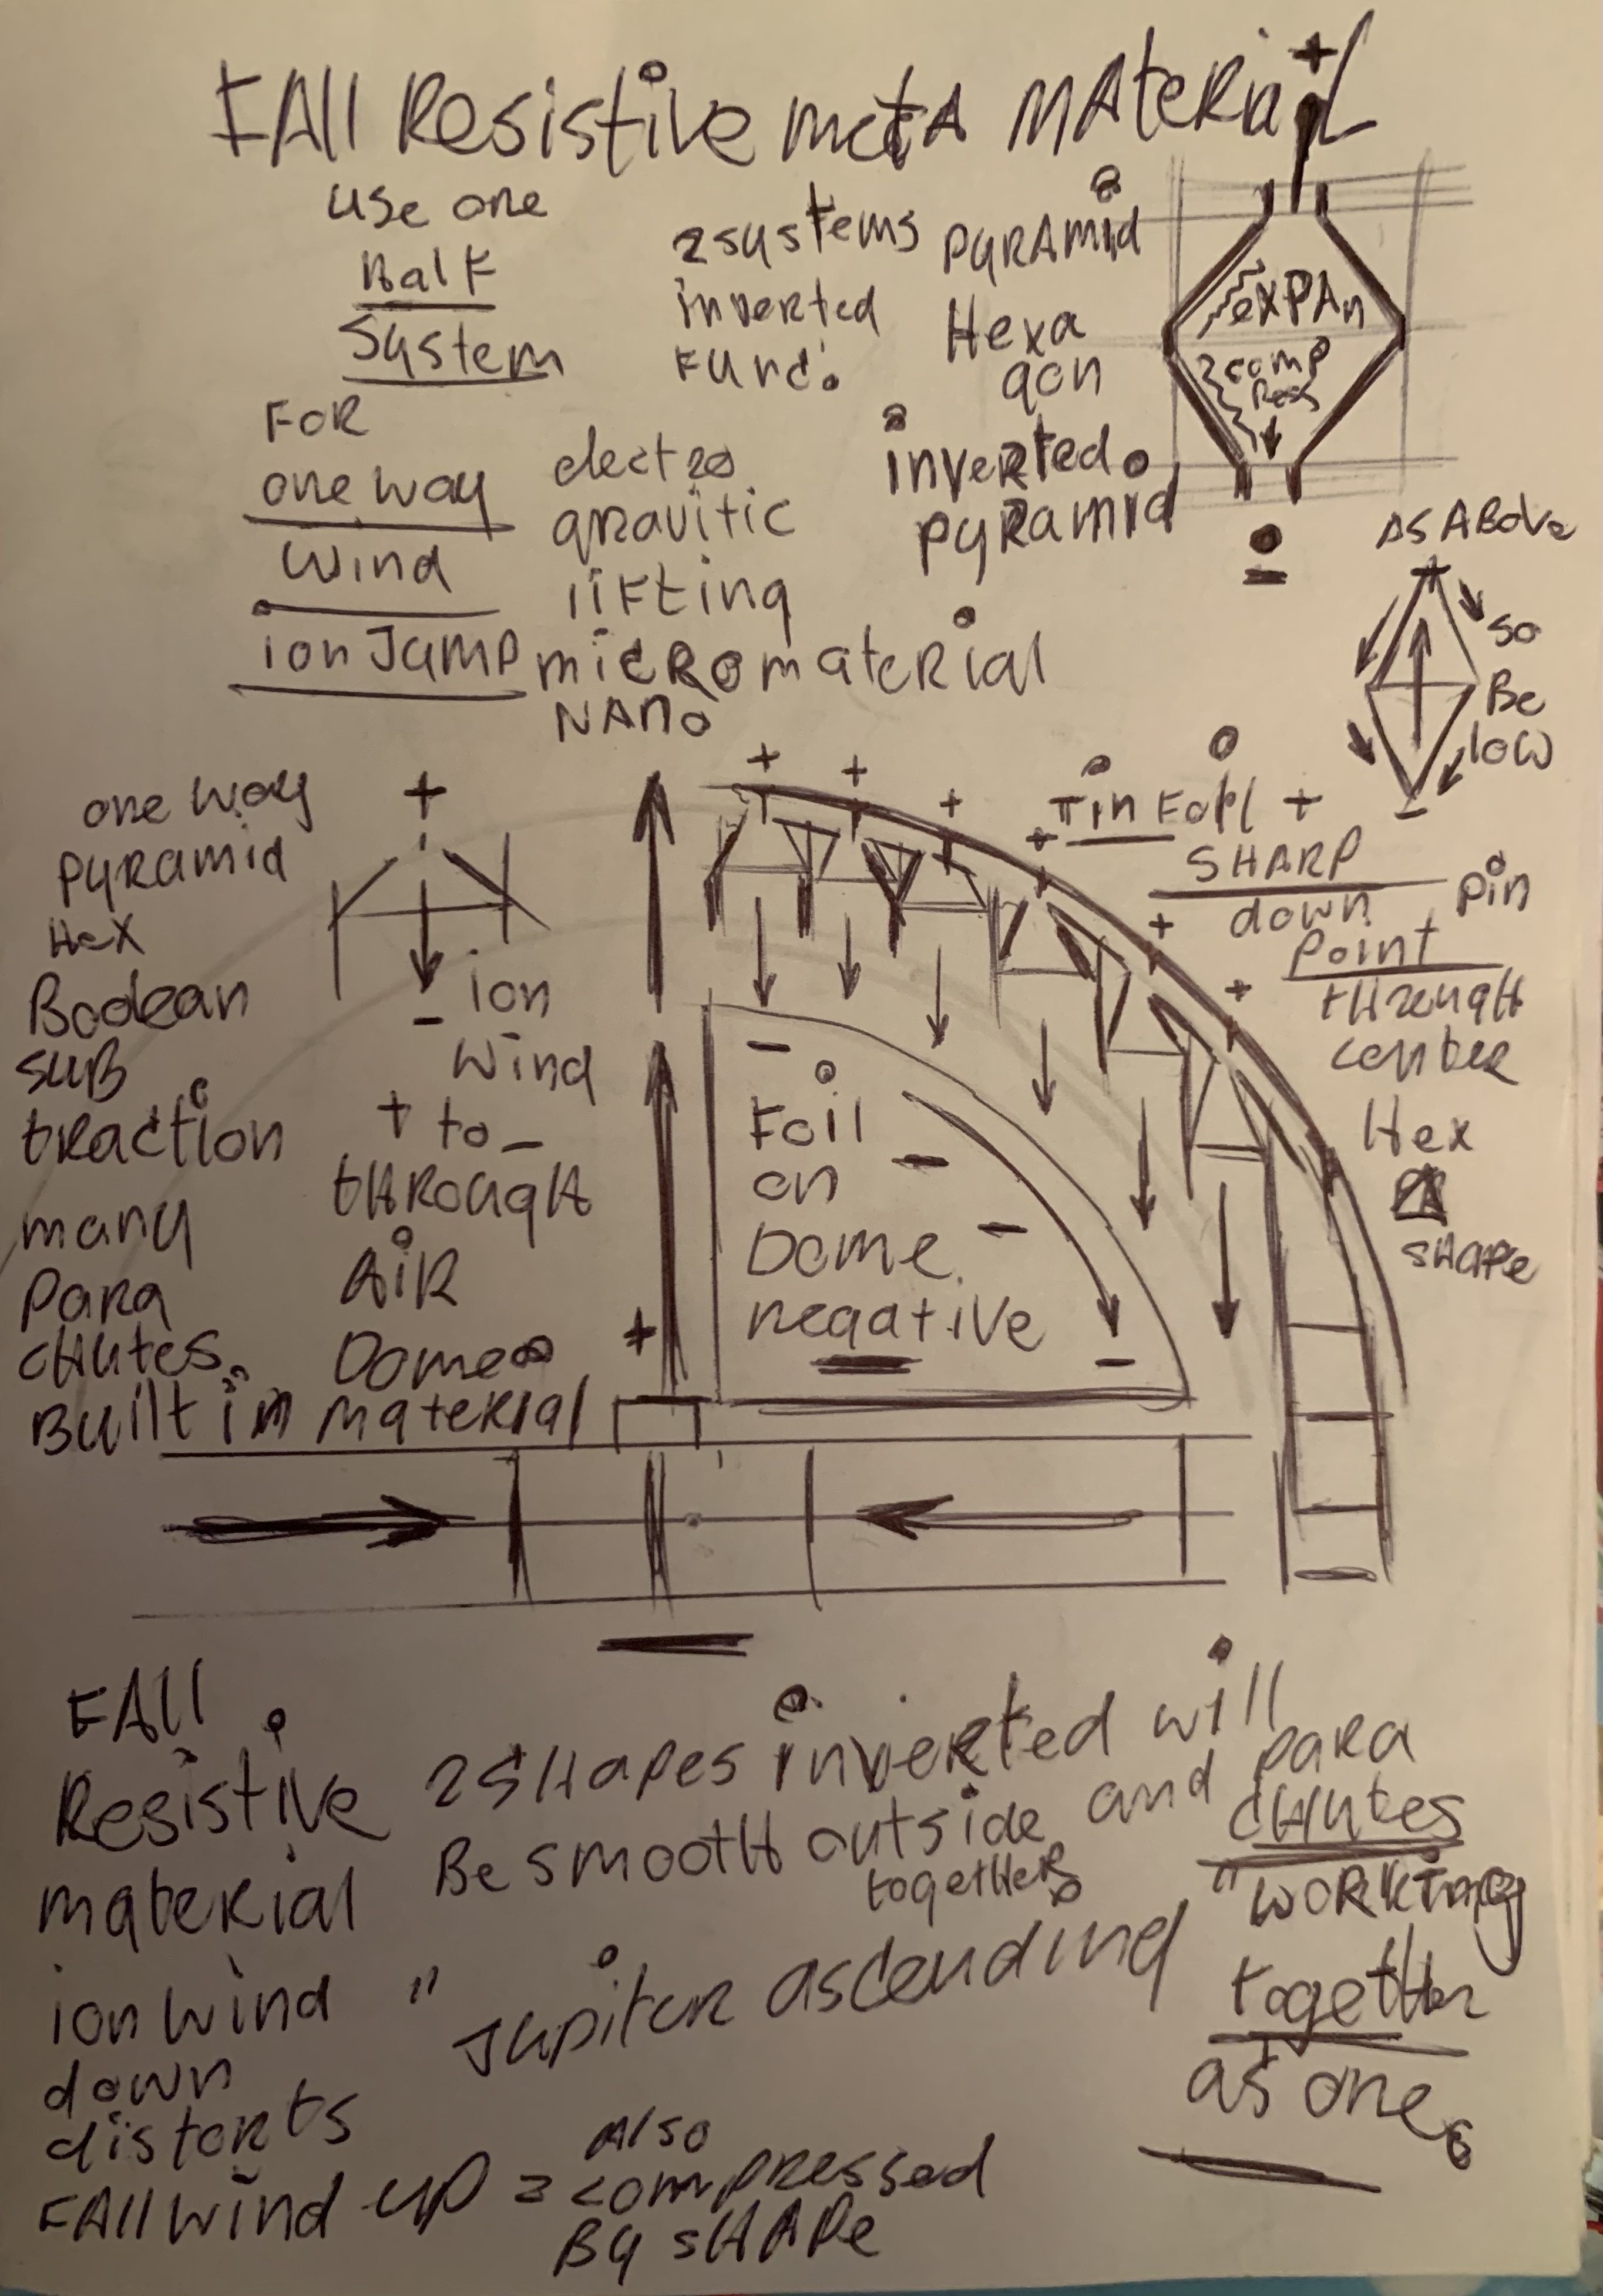 FAll Resistive metA MAteRiaL
+
use one
Half
System
FOR
one way
Wind
ion Jump
2 systems
inverted
Func.
electro
gravitic
lifting
micro material
NANo
PyRAmid
Hexa
gon
inverted
pyramid
eXPAn
comp
Res
-
AS ABove
so
Be
low
-
one way
pyramid
Hex
Boolean
suB
traction
many
para
cHutes.
Built in material
+
- ion
wind
+ to -
tHRougH
AiR
Dome
+ + + + + + +
Tin Foil +
SHARP
down
pin
point
tHrougH
center
Hex
sHApe
-
Foil
on
Dome
negative
- - -
+
-
FAll
Resistive
material
ion wind
down
distorts
FAll wind up = Also
compressed
By sHAPe
2 SHApes inverted will
Be smootH outside and para
togetHer
cHutes
"Jupiter ascending"
working
togetHer
as one